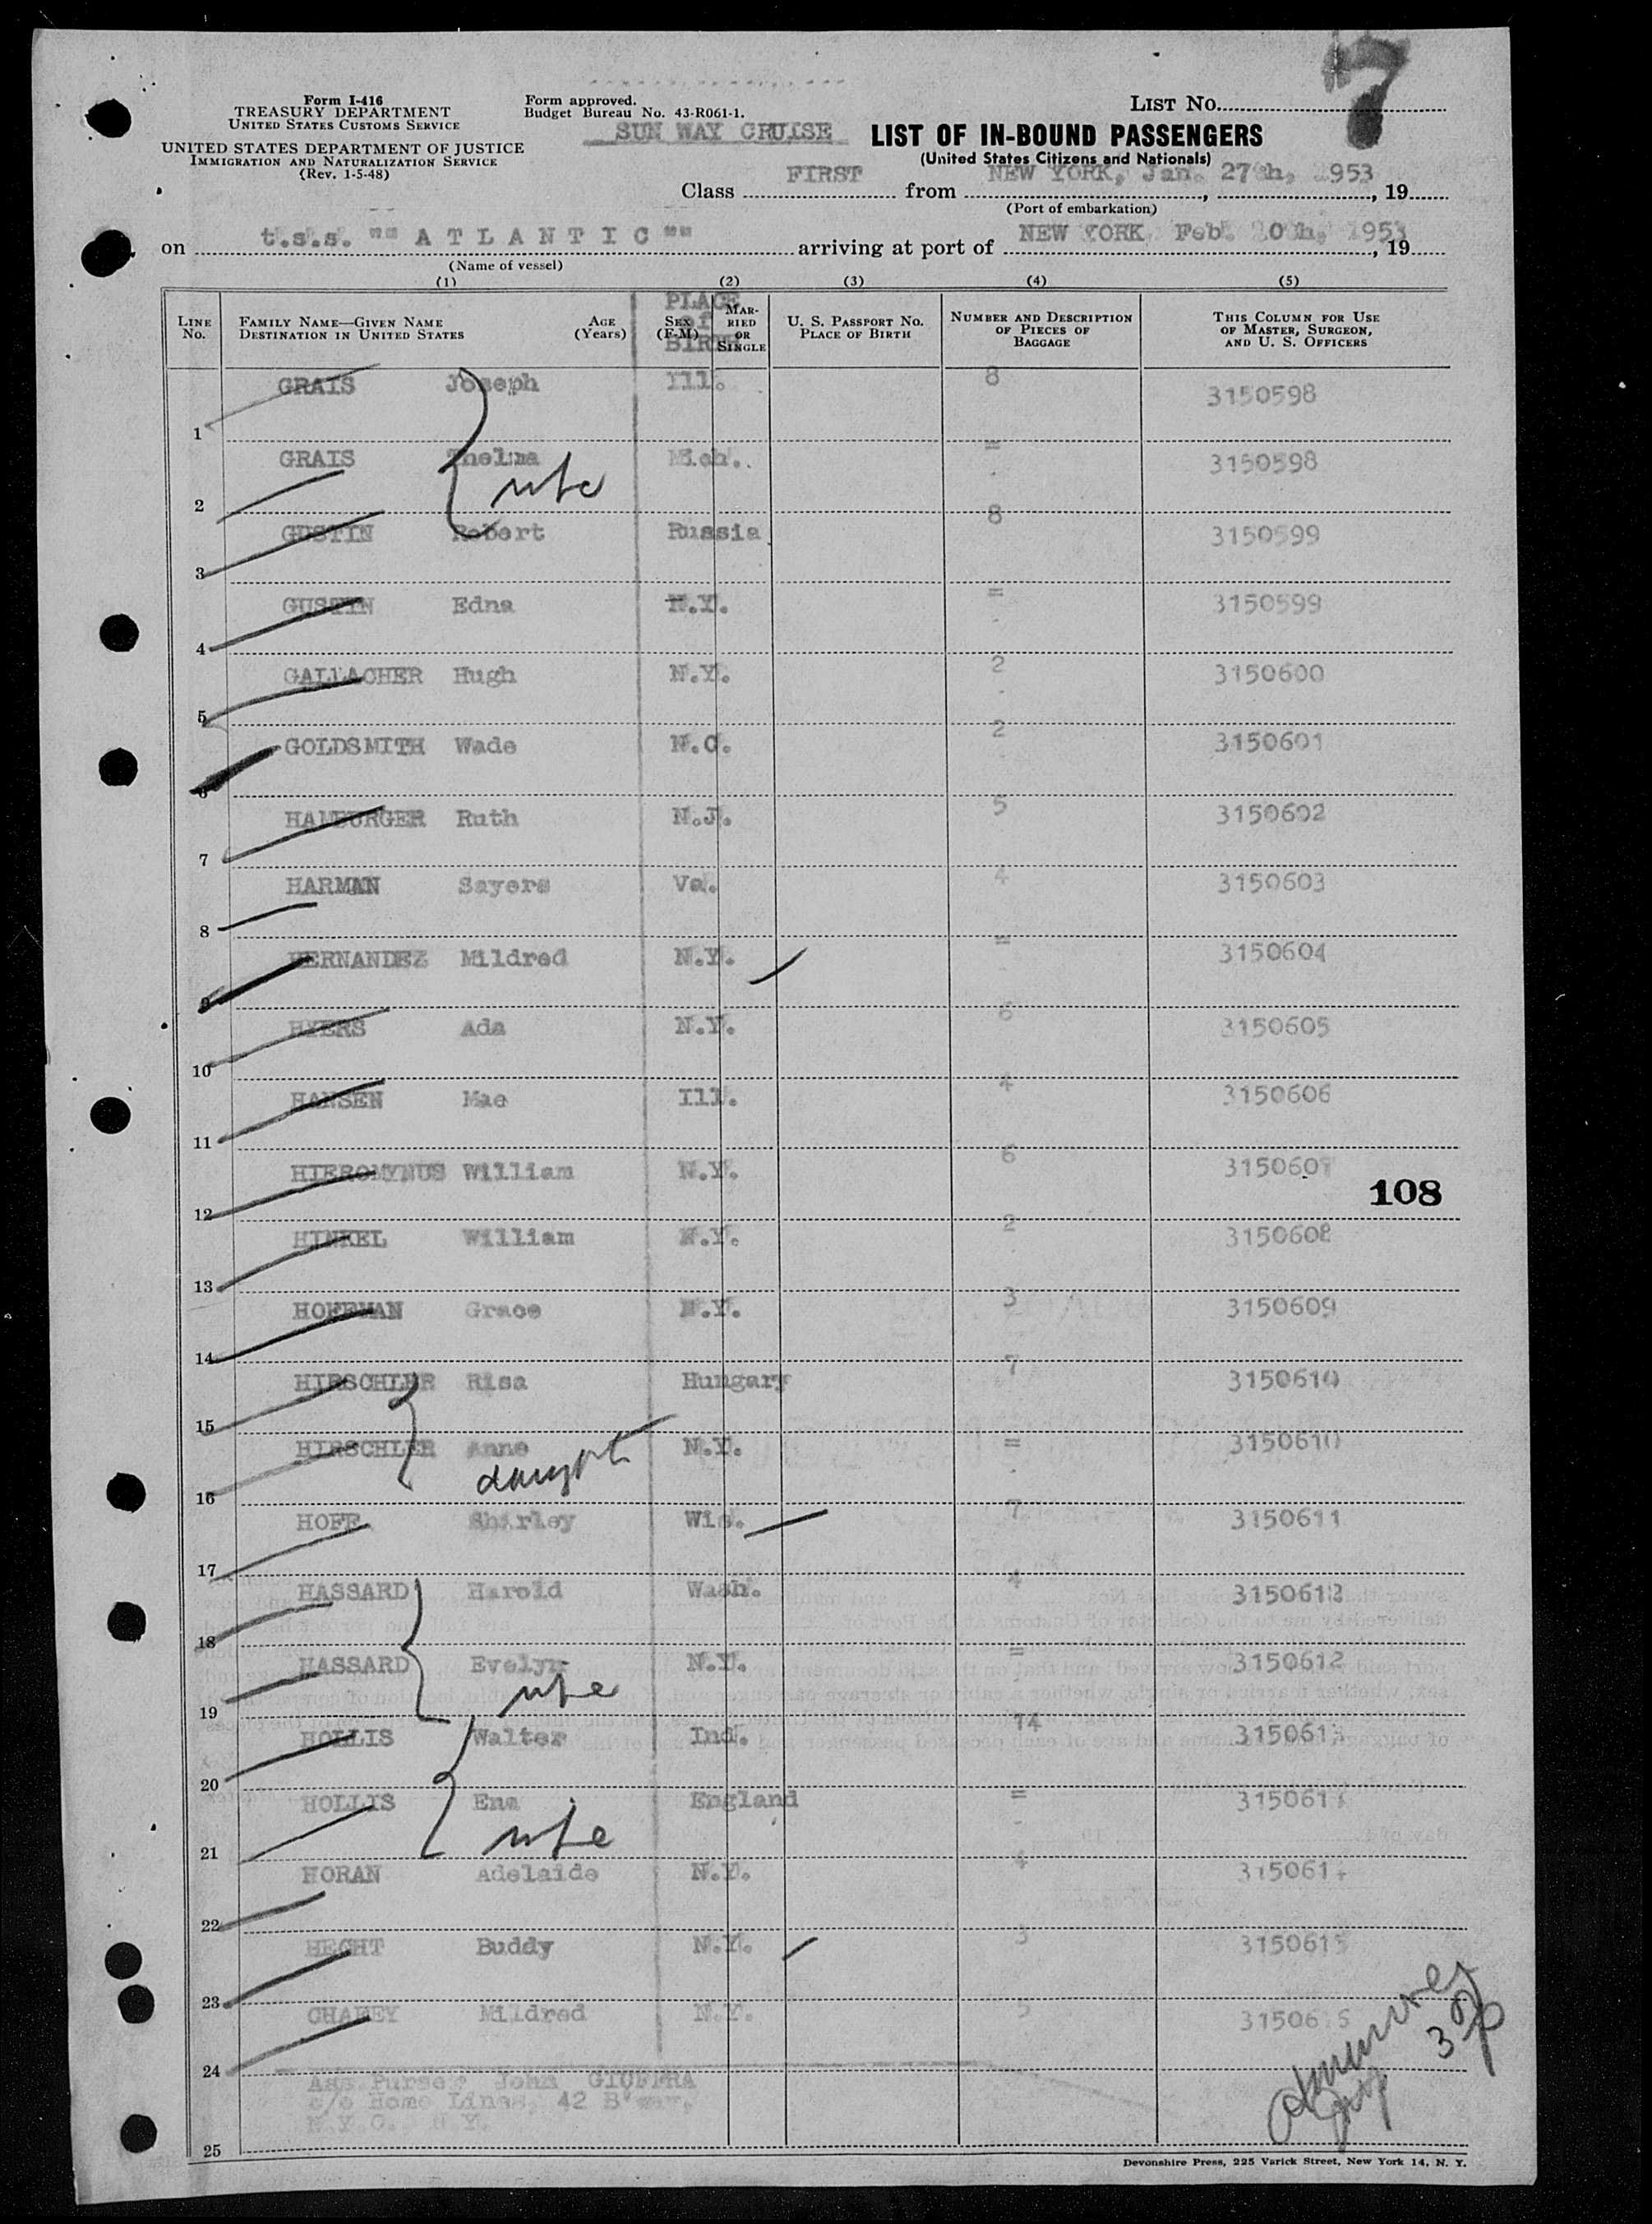 7
Form I-416
TREASURY DEPARTMENT
UNITED STATES CUSTOMS SERVICE
UNITED STATES DEPARTMENT OF JUSTICE
IMMIGRATION AND NATURALIZATION SERVICE
(Rev. 1-5-48)
Form approved.
Budget Bureau No. 43-R061-1.
LIST NO.
SUN WAY CRUISE LIST OF IN-BOUND PASSENGERS
(United States Citizens and Nationals)
Class FIRST from NEW YORK, Jan. 27th, 1953, 19
(Port of embarkation)
on t.s.s. "" A T L A N T I C "" arriving at port of NEW YORK Feb. 20th, 1953, 19
(Name of vessel)
(1) (2) (3) (4) (5)
LINE No. FAMILY NAME—GIVEN NAME DESTINATION IN UNITED STATES AGE (Years) SEX (F-M) PLACE of BIRTH MARRIED OR SINGLE U. S. PASSPORT NO. PLACE OF BIRTH NUMBER AND DESCRIPTION OF PIECES OF BAGGAGE THIS COLUMN FOR USE OF MASTER, SURGEON, AND U. S. OFFICERS
1 GRAIS Joseph Ill. 8 3150598
2 GRAIS Thelma Mich. = 3150598
wife
3 GUSTIN Robert Russia 8 3150599
4 GUSTIN Edna N.Y. = 3150599
5 GALLACHER Hugh N.Y. 2 3150600
6 GOLDSMITH Wade N.C. 2 3150601
7 HAMBURGER Ruth N.J. 5 3150602
8 HARMAN Sayers Va. 4 3150603
9 HERNANDEZ Mildred N.Y. = 3150604
10 HYERS Ada N.Y. 6 3150605
11 HANSEN Mae Ill. 4 3150606
12 HIEROMYNUS William N.Y. 6 3150607
108
13 HINKEL William N.Y. 2 3150608
14 HOFFMAN Grace N.Y. 3 3150609
15 HIRSCHLER Risa Hungary 7 3150610
16 HIRSCHLER Anne N.Y. = 3150610
17 HOFF Shirley Wis. 7 3150611
18 HASSARD Harold Wash. 4 3150612
19 HASSARD Evelyn N.Y. = 3150612
wife
20 HOLLIS Walter Ind. 14 3150613
21 HOLLIS Ena England = 3150613
wife
22 HORAN Adelaide N.Y. 4 3150614
23 HECHT Buddy N.Y. 3 3150615
24 Mildred N.Y. 5
Ass Purser John GIUFFRA
c/o Home Lines, 42 B'way,
N.Y.C. N.Y.
25
Devonshire Press, 225 Varick Street, New York 14, N. Y.